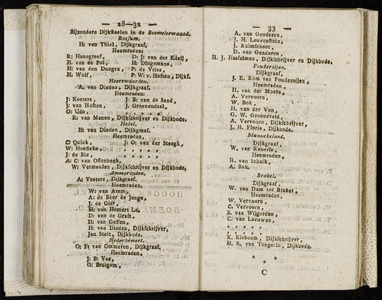 — 28-32 —
Bijzondere Dijkstoelen in de Bommelerwaard.
Rossum.
H: van Thiel, Dijkgraaf,
Heemraden:
R: Hanegreef, D: J: van der
H: van de Pol, H: Dingemans,
H: van den Dungen, P: de Vries,
H: Wolf, P: W: v: Hoften, Dijkf.
Heerewaarden.
A. van Dieden, Dijkgraaf,
Heemraden:
J: Kosters, J: B: van de Sand,
J: Hoften, J: Groenendaal,
G: Udo,
R: van Maneo, Dijkschrijver en Dijkbode.
Hedel.
H: van Dieden, Dijkgraaf,
Heemraden:
C: Quiek, J: O: van der Steegh,
W: Hoefnske,
J: de Bie,
A: C: van Offenbegk,
W: Vermeulen, Dijkschrijver en Dijkbode.
Ammerzoden.
A: Vesters, Dijkgraaf,
Heemraden:
W: van Anem,
A: de Beer de Jonge,
J: de Gier,
M: van Hemert Lz.
D: van de Graft,
H: van Geffen,
H: van Dieden, Dijkschrijver,
Jan Stelt, Dijkbode.
Nederhemert.
O: F: van Ommeren, Dijkgraaf,
Heemraden:
J: B: Vos,
G: Bruigom,
— 33 —
A. van Genderen,
J. H. Louwenstein,
J. Ruimschoot,
D. van Genderen,
H. J. Hasselman, Dijkschrijver en Dijkbode.
Poederoijen.
Dijkgraaf,
J. E. Röm van Poudenoijen,
Heemraden,
H. van der Moore,
A. Vervoorn,
W. Bok,
H. van der Ven,
G. W. Groeneveld,
A. Vervoorn, Dijkschrijver,
J. H. Floris, Dijkbode.
Munnikeland.
Dijkgraaf,
W. van Renesse,
Heemraden,
H. van Schaik,
A. Bok,
Brakel.
Dijkgraaf,
W. van Dam tot Brakel,
Heemraden,
W. Vervoorn,
C. Vervoorn,
S. van Wijgerden,
C. van Leeuwen,
K. Kieboum, Dijkschrijver,
H. K. van Tongerlo, Dijkbode.
* * *
C